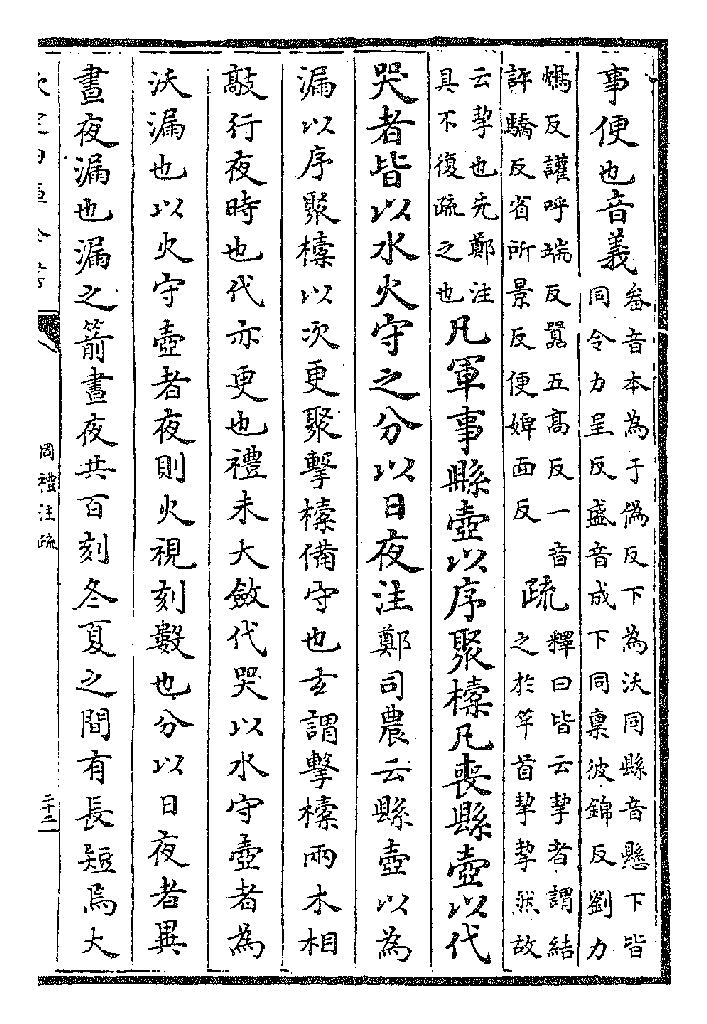 事便也音義
叅音本為于偽反下為沃同縣音懸下皆
同令力呈反盛音成下同稟彼錦反劉力
鴆反讙呼端反囂五高反一音
許驕反省所景反便婢面反
疏
釋曰皆云挈者謂結
之於竿首挈挈然故
云挈也先鄭注
具不復疏之也
凡軍事縣壺以序聚㯓凡喪縣壺以代
哭者皆以水火守之分以日夜注鄭司農云縣壺以為
漏以序聚㯓以次更聚擊㯓備守也玄謂擊㯓兩木相
敲行夜時也代亦更也禮未大斂代哭以水守壺者為
沃漏也以火守壺者夜則火視刻數也分以日夜者異
晝夜漏也漏之箭晝夜共百刻冬夏之間有長短焉大
欽定四庫全書
周禮注疏